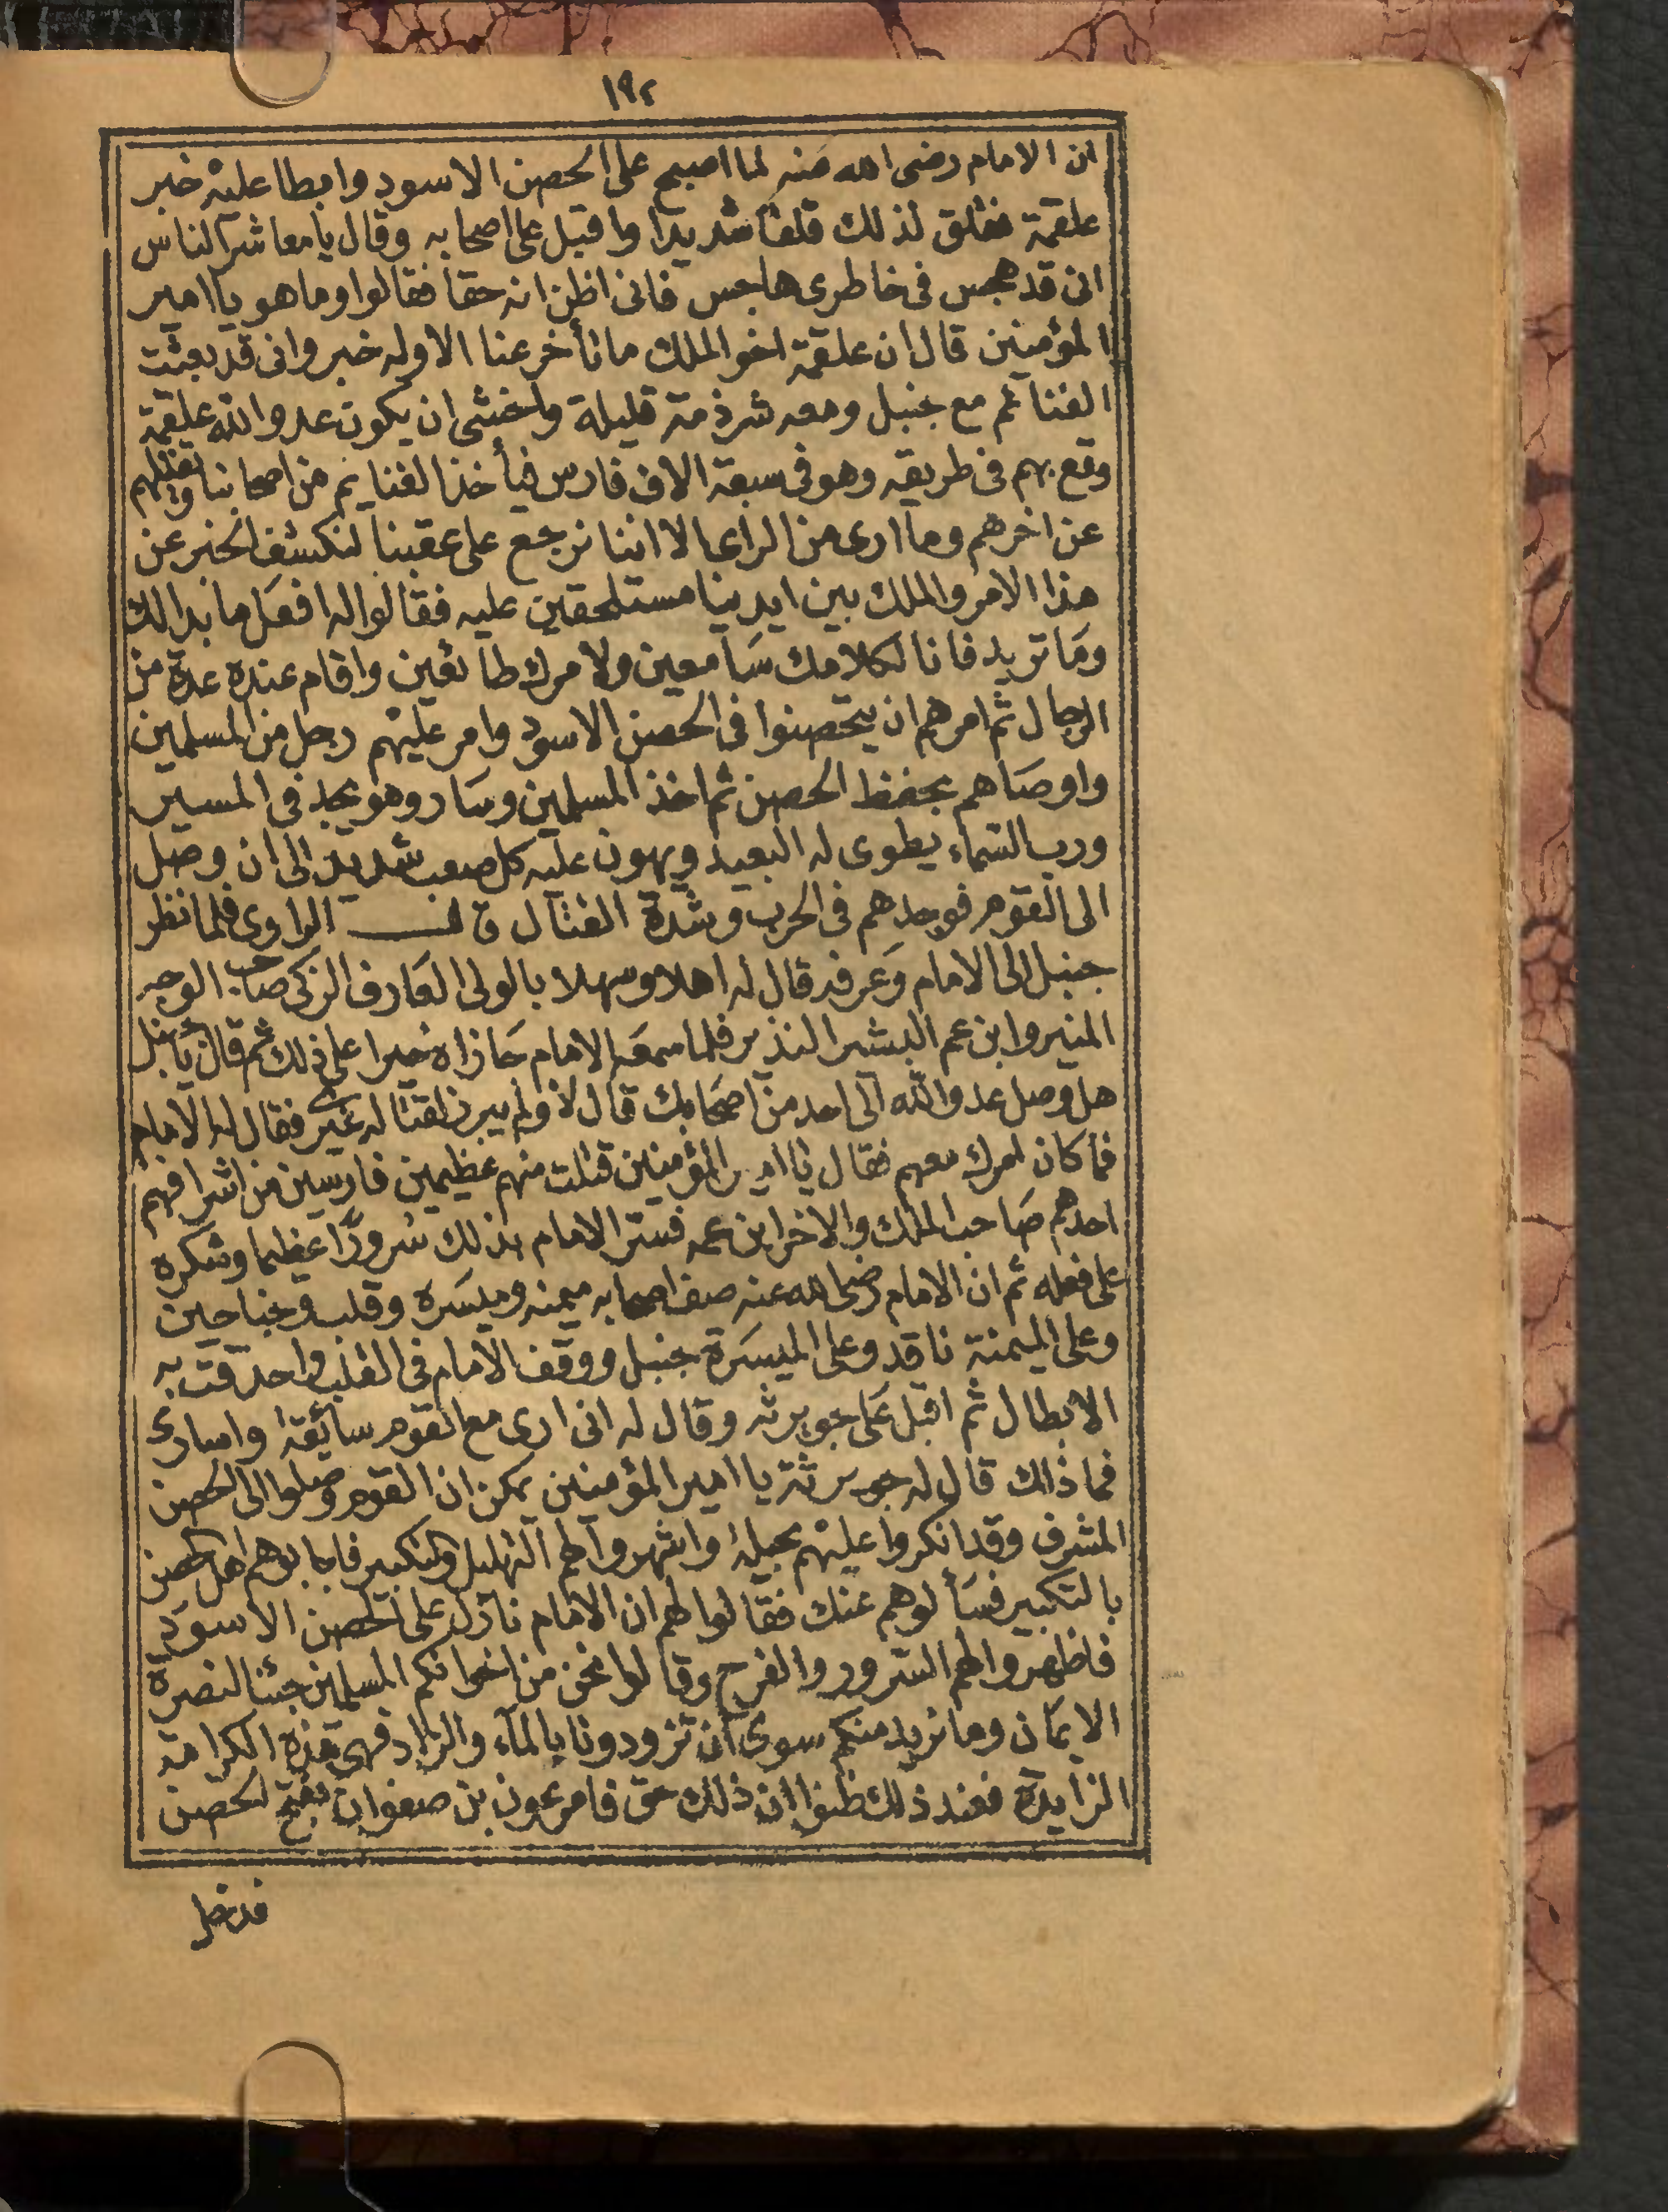 ١٩٢
ان الامام رضى الله عنه لما اصبح على الحصن الاسود وابطا عليه خبر
علقمة فقلق لذلك قلقا شديدا واقبل على اصحابه وقال يا معاشر الناس
انى قد هجس فى خاطرى هاجس فانى اظن انه حقا فقالوا وما هو يا امير
المؤمنين قال ان علقمة اخو الملك ما تأخر عنا الا وله خبر وانى قد بعثت
الغنائم مع جنبل ومعه شرذمة قليلة واخشى ان يكون عدو الله علقمة
وقع بهم فى طريقه وهو فى سبعة الاف فارس فيأخذ الغنايم من اصحابنا ويقتلهم
عن اخرهم وما ارى من الراى الا اننا نرجع على عقبنا لنكشف الخبر عن
هذا الامر والملك بين ايدينا مستلحقين عليه فقالوا له افعل ما بدا لك
وما تريد فانا لكلامك سامعين ولامرك طائعين واقام عنده عدة من
الرجال ثم امرهم ان يتحصنوا فى الحصن الاسود وامر عليهم رجل من المسلمين
واوصاهم بحفظ الحصن ثم اخذ المسلمين وسار وهو يجد فى المسير
ورب السماء يطوى له البعيد ويهون عليه كل صعب شديد الى ان وصل
الى القوم فوجدهم فى الحرب وشدة القتال قال الراوى فلما نظر
جنبل الى الامام وعرفه قال له اهلا وسهلا بالولى العارف الزكى صاحب الوجه
المنير وابن عم البشير النذير فلما سمعه الامام جازاه خيرا على ذلك ثم قال يا جنبل
هل وصل عدو الله الى احد من اصحابك قال لا ولم يبرز لقتاله غيرى فقال له الامام
فما كان امرك معهم فقال يا امير المؤمنين قتلت منهم عظيمين فارسين من اشرافهم
احدهم صاحب الملك والاخر ابن عمه فسر الامام بذلك سرورًا عظيما وشكره
على فعله ثم ان الامام رضى الله عنه صف اصحابه ميمنه وميسره وقلب وجناحين
وعلى الميمنة ناقد وعلى الميسرة جنبل ووقف الامام فى القلب واحدقت به
الابطال ثم اقبل على جويرثه وقال له انى ارى مع القوم سائقه واسارى
فما ذلك قال له جويرثة يا امير المؤمنين يمكن ان القوم وصلوا الى الحصن
المشرف وقد انكروا عليهم بحيلة واشهروا لهم التهليل والتكبير فاجابوهم اهل الحصن
بالتكبير فسألوهم عنك فقالوا لهم ان الامام نازل على الحصن الاسود
فاظهروا لهم السرور والفرح وقالوا نحن من اخوانكم المسلمين جئنا لنصرة
الايمان وما نريد منكم سوى ان تزودونا بالماء والزاد فهى هذه الكرامة
الزايدة فعند ذلك ظنوا ان ذلك حق فامر عون بن صفوان بفتح الحصن
فدخل